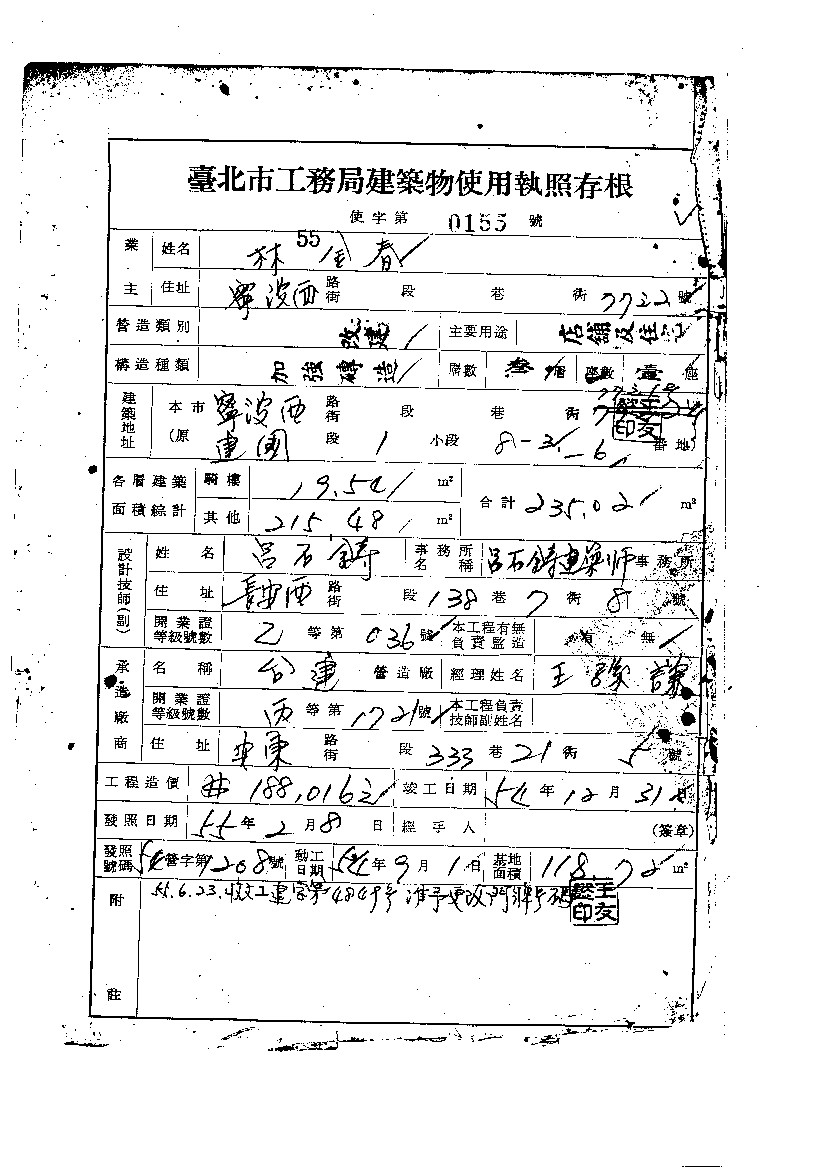 臺北市工務局建築物使用執照存根
使字第 0155 號
55
業主 姓名 林金春
住址 寧波西 路街 段 巷 街 號
營造類別 改建 主要用途 店舖及住
構造種類 加強磚造 層數 層 座數 壹 座
建築地址 本市 寧波西 路街 段 巷 街
(原 建國 段 1 小段 8-3, -6 番地)
各層建築面積綜計 騎樓 19.54 m² 合計 235.02 m²
其他 215.48 m²
設計技師(副) 姓名 呂石鑄 事務所名稱 呂石鑄建築师 事務所
住址 長安西 路街 段 138 巷 7 街 8 號
開業證等級號數 乙 等第 036 號 本工程有無負責監造 有 無
承造廠商 名稱 台建 營造廠 經理姓名 王 謙
開業證等級號數 丙 等第 1721 號 本工程負責技師副姓名
住址 安東 路街 段 333 巷 21 街 5 號
工程造價 # 188,016 元 竣工日期 54 年 12 月 31 日
發照日期 55 年 2 月 8 日 經手人 (簽章)
發照號碼 54 營字第 1208 號 動工日期 54 年 9 月 1 日 基地面積 118.72 m²
附註 55.6.23.收工建字第4849号准予更改門牌号碼